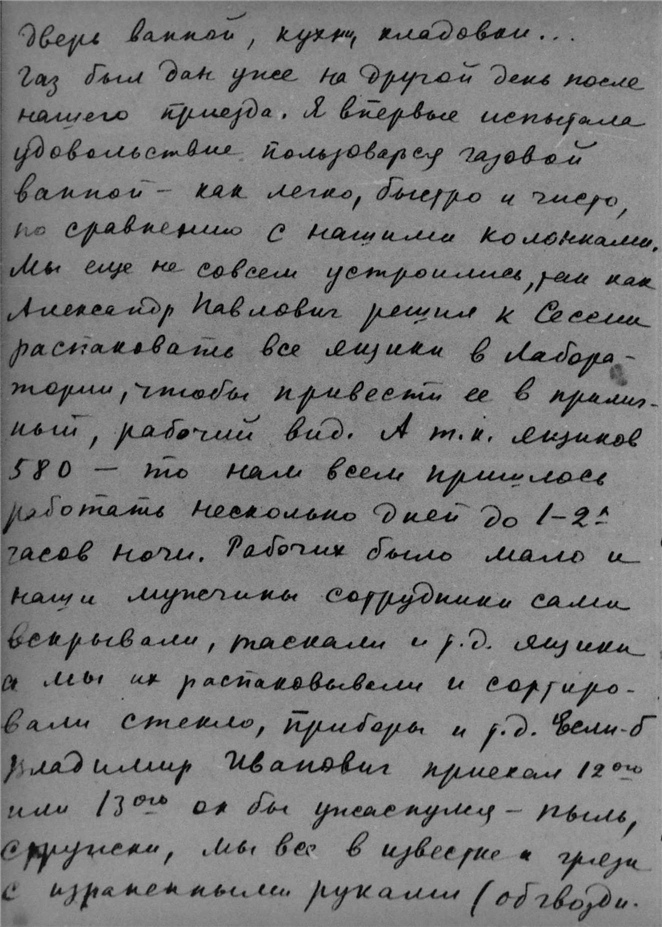 дверь ванной, кухни, кладовки...
Газ был дан уже на другой день после
нашего приезда. Я впервые испытала
удовольствие пользоваться газовой
ванной – как легко, быстро и чисто,
по сравнению с нашими колонками.
Мы еще не совсем устроились, так как
Александр Павлович решил к Сессии
распаковать все ящики в Лабора-
тории, чтобы привести ее в прилич-
ный, рабочий вид. А т.к. ящиков
580 – то нам всем пришлось
работать несколько дней до 1–2х
часов ночи. Рабочих было мало и
наши мужчины сотрудники сами
вскрывали, таскали и т.д. ящики
а мы их распаковывали и сортиро-
вали стекло, приборы и т.д. Если-б
Владимир Иванович приехал 12ого
или 13ого он бы ужаснулся – пыль,
стружки, мы все в известке и грязи
с израненными руками (об гвозди.